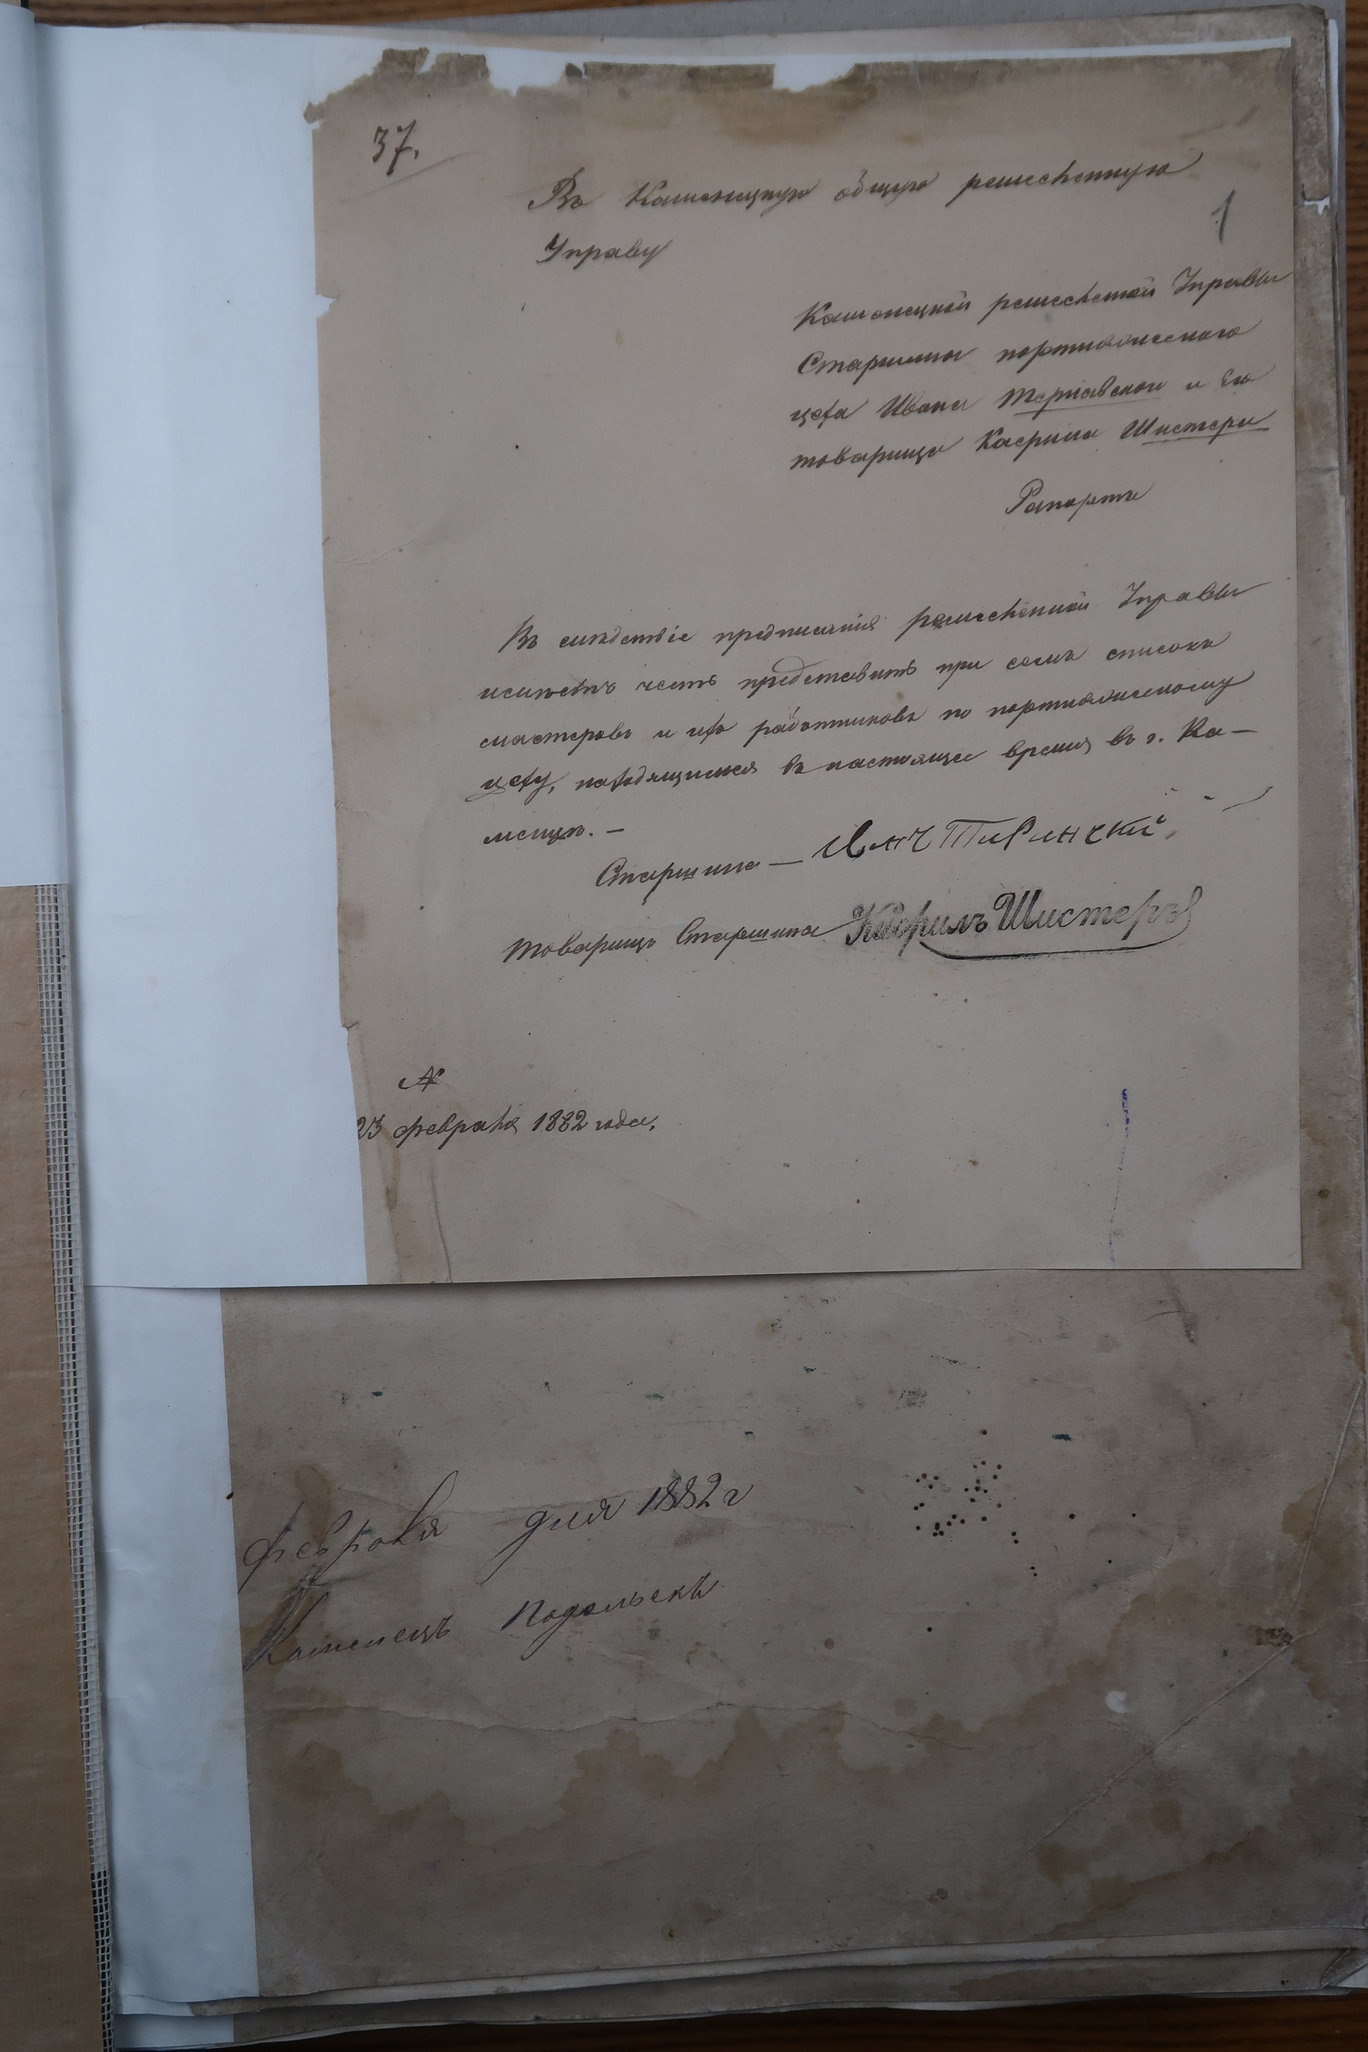 37.
Въ Каменецкую общую ремесленную
1
Управу
Каменецкой ремесленной Управы
Старшины портняжескаго
цеха Ивана и Его
товарища Касрила Шистера
Рапортъ
Въ слѣдствіе предписанія ремесленной Управы
имѣемъ честь представить при семъ списокъ
мастеровъ и ихъ работниковъ по портняжескому
цеху, находящимся въ настоящее время въ г. Ка-
менцѣ. —
Старшина —
Товарищъ Старшина Касрилъ Шистеръ
№
23 февраля 1882 года.
февраля дня 1882 г
Каменецъ Подольскъ